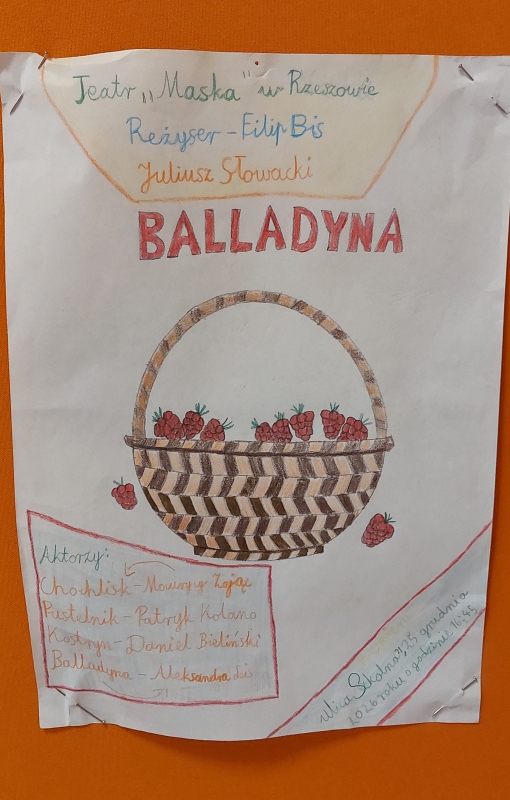 Teatr „Maska" w Rzeszowie
Reżyser - Filip Bis
Juliusz Słowacki
BALLADYNA
Aktorzy:
Chochlik - Zając
Pustelnik - Patryk Kolano
Kostryn - Daniel Bieliński
Balladyna - Aleksandra Lis
ulica Szkolna 7, 25 grudnia
2026 roku o godzinie 16:45